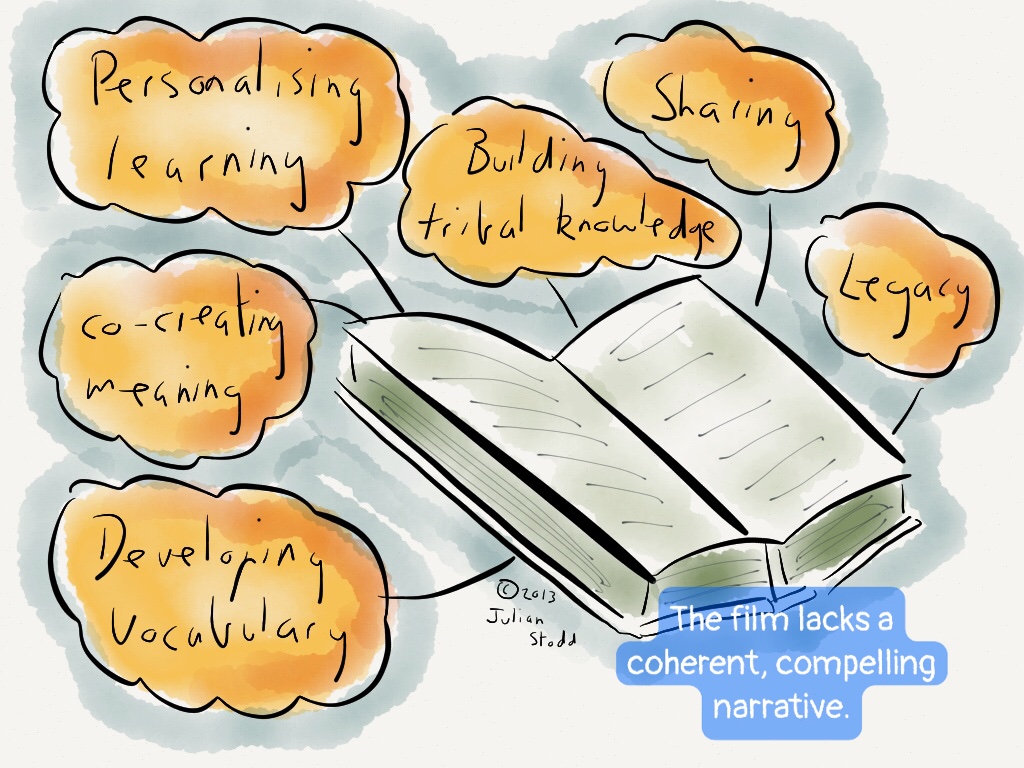 Personalising
learning
Building
tribal knowledge
Sharing
Legacy
co-creating
meaning
Developing
Vocabulary
©2013
Julian
Stodd
The film lacks a
coherent, compelling
narrative.